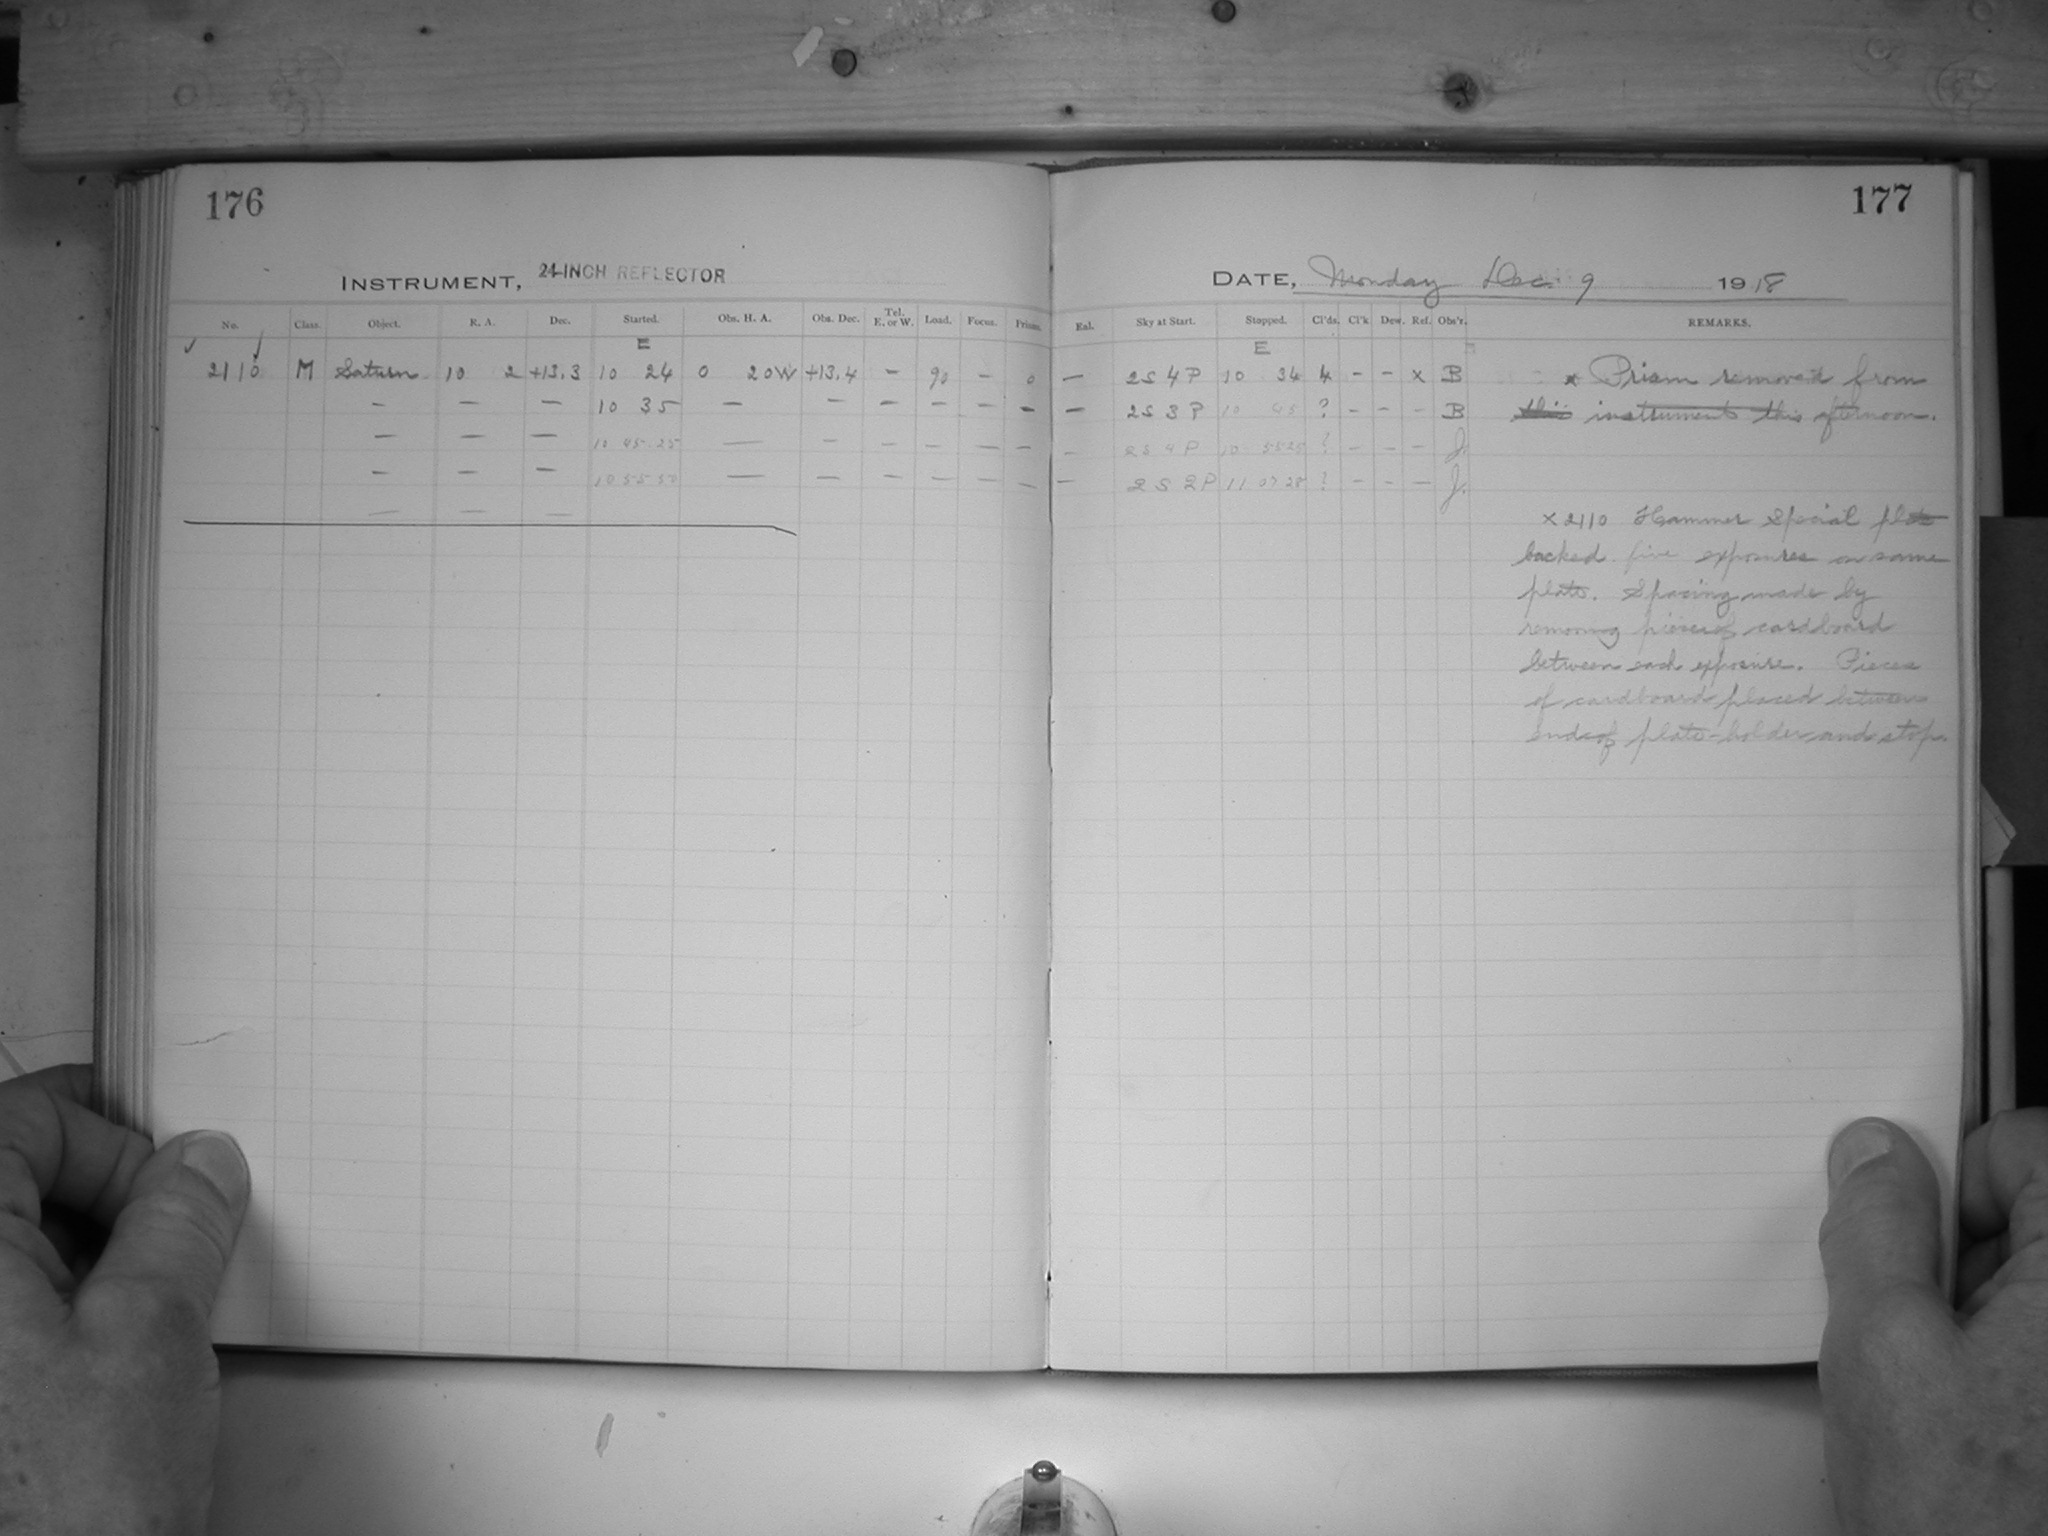 176
177
INSTRUMENT, 24-INCH REFLECTOR
DATE, Monday Dec. 9 1918
No. Class. Object. R. A. Dec. Started. Obs. H. A. Obs. Dec. Tel. E. or W. Load. Focus. Prism. Eal. Sky at Start. Stopped. Cl'ds. Cl'k Dew. Ref. Obs'r. REMARKS.
E E
2110 M Saturn 10 2 +13.3 10 24 0 20W +13.4 — 90 — 0 — 2S 4P 10 34 4 - - x B
— — — 10 35 — — — — — — — 2S 3P 10 45 ? - - - B
— — — 10 45 25 — — — — — — — 2S 4P 10 55 25 ? - - - J.
— — — 10 55 50 — — — — — — — 2S 2P 11 07 28 ? - - - J.
— — —
x Prism removed from
this instrument this afternoon.
x 2110 Hammer Special plate
backed five exposures on same
plate. Spacing made by
removing pieces of cardboard
between each exposure. Pieces
of cardboard placed between
end of plate-holder and stop.